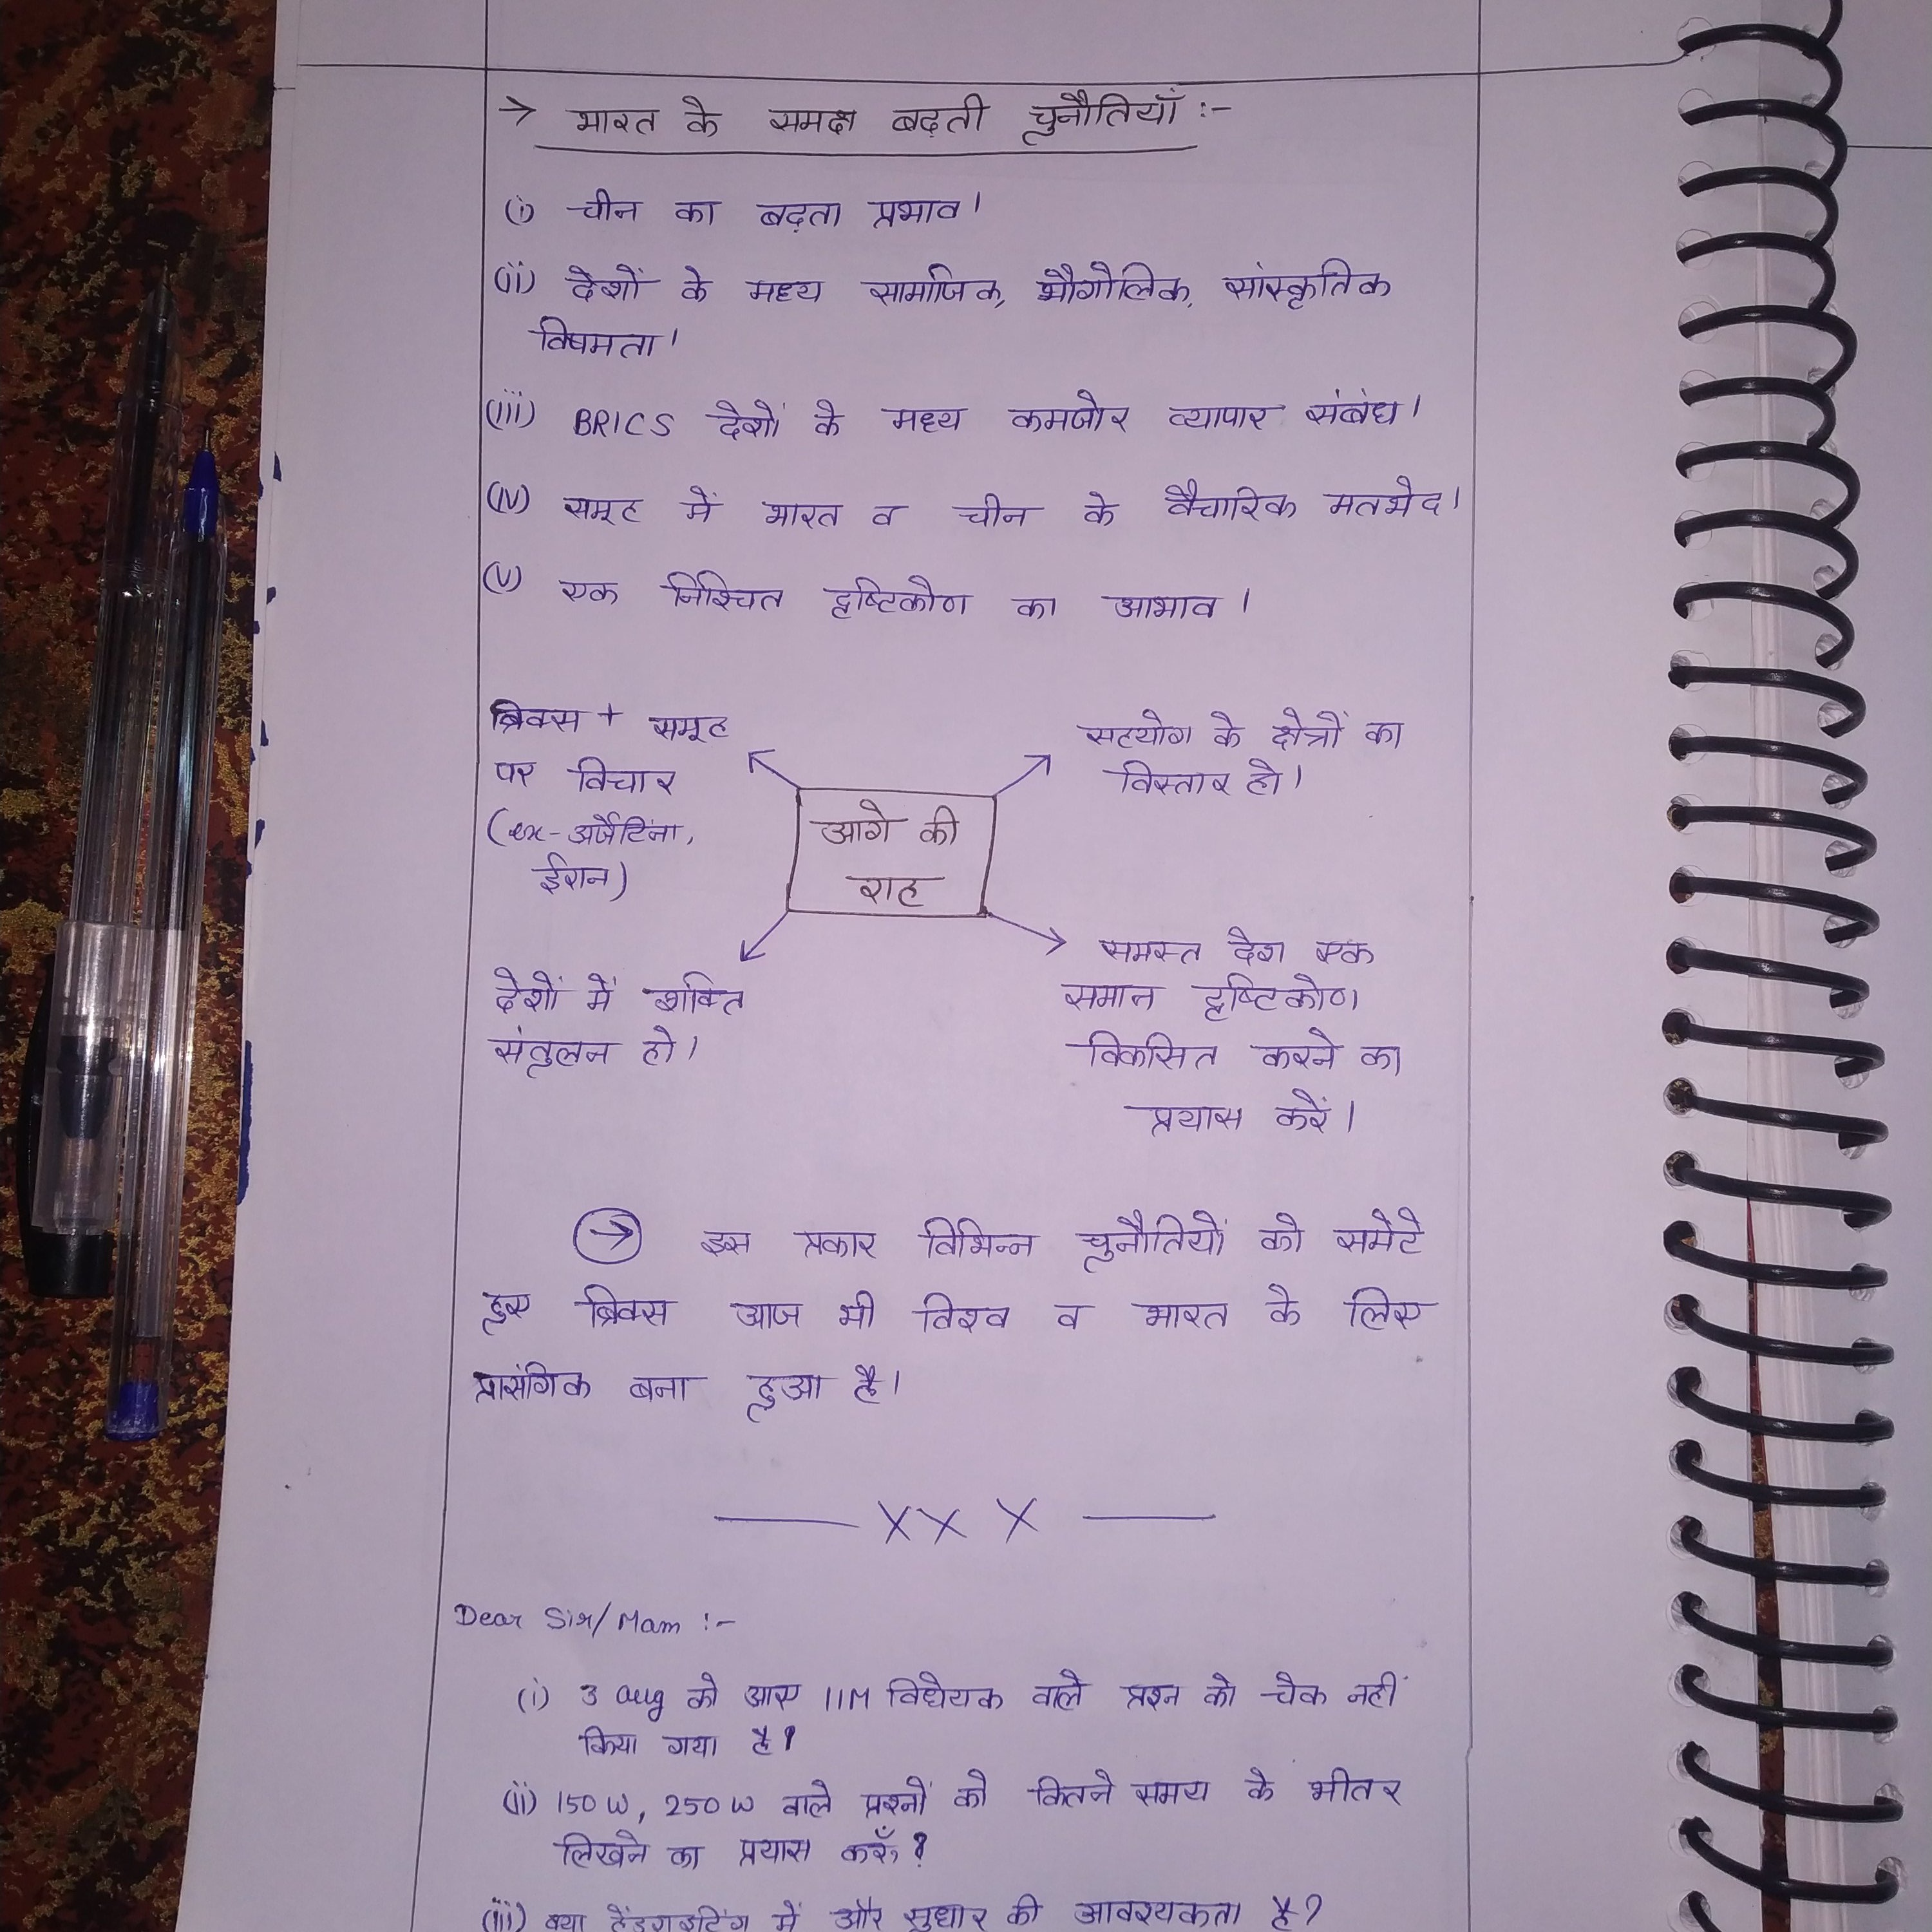 → भारत के समक्ष बढ़ती चुनौतियाँ :-
(i) चीन का बढ़ता प्रभाव।
(ii) देशों के मध्य सामाजिक, भौगोलिक, सांस्कृतिक
विषमता।
(iii) BRICS देशों के मध्य कमजोर व्यापार संबंध।
(iv) समूह में भारत व चीन के वैचारिक मतभेद।
(v) एक निश्चित दृष्टिकोण का आभाव।
ब्रिक्स + समूह
पर विचार
(ex- अर्जेंटिना,
ईरान)
सहयोग के क्षेत्रों का
विस्तार हो।
आगे की
राह
देशों में शक्ति
संतुलन हो।
समस्त देश एक
समान दृष्टिकोण
विकसित करने का
प्रयास करें।
→ इस प्रकार विभिन्न चुनौतियों को समेटे
हुए ब्रिक्स आज भी विश्व व भारत के लिए
प्रासंगिक बना हुआ है।
—— X X X ——
Dear Sir/Mam :-
(i) 3 Aug को आए IIM विधेयक वाले प्रश्न को चेक नहीं
किया गया है?
(ii) 150 W, 250 W वाले प्रश्नों को कितने समय के भीतर
लिखने का प्रयास करूँ?
(iii) क्या हैंडराइटिंग में और सुधार की आवश्यकता है?